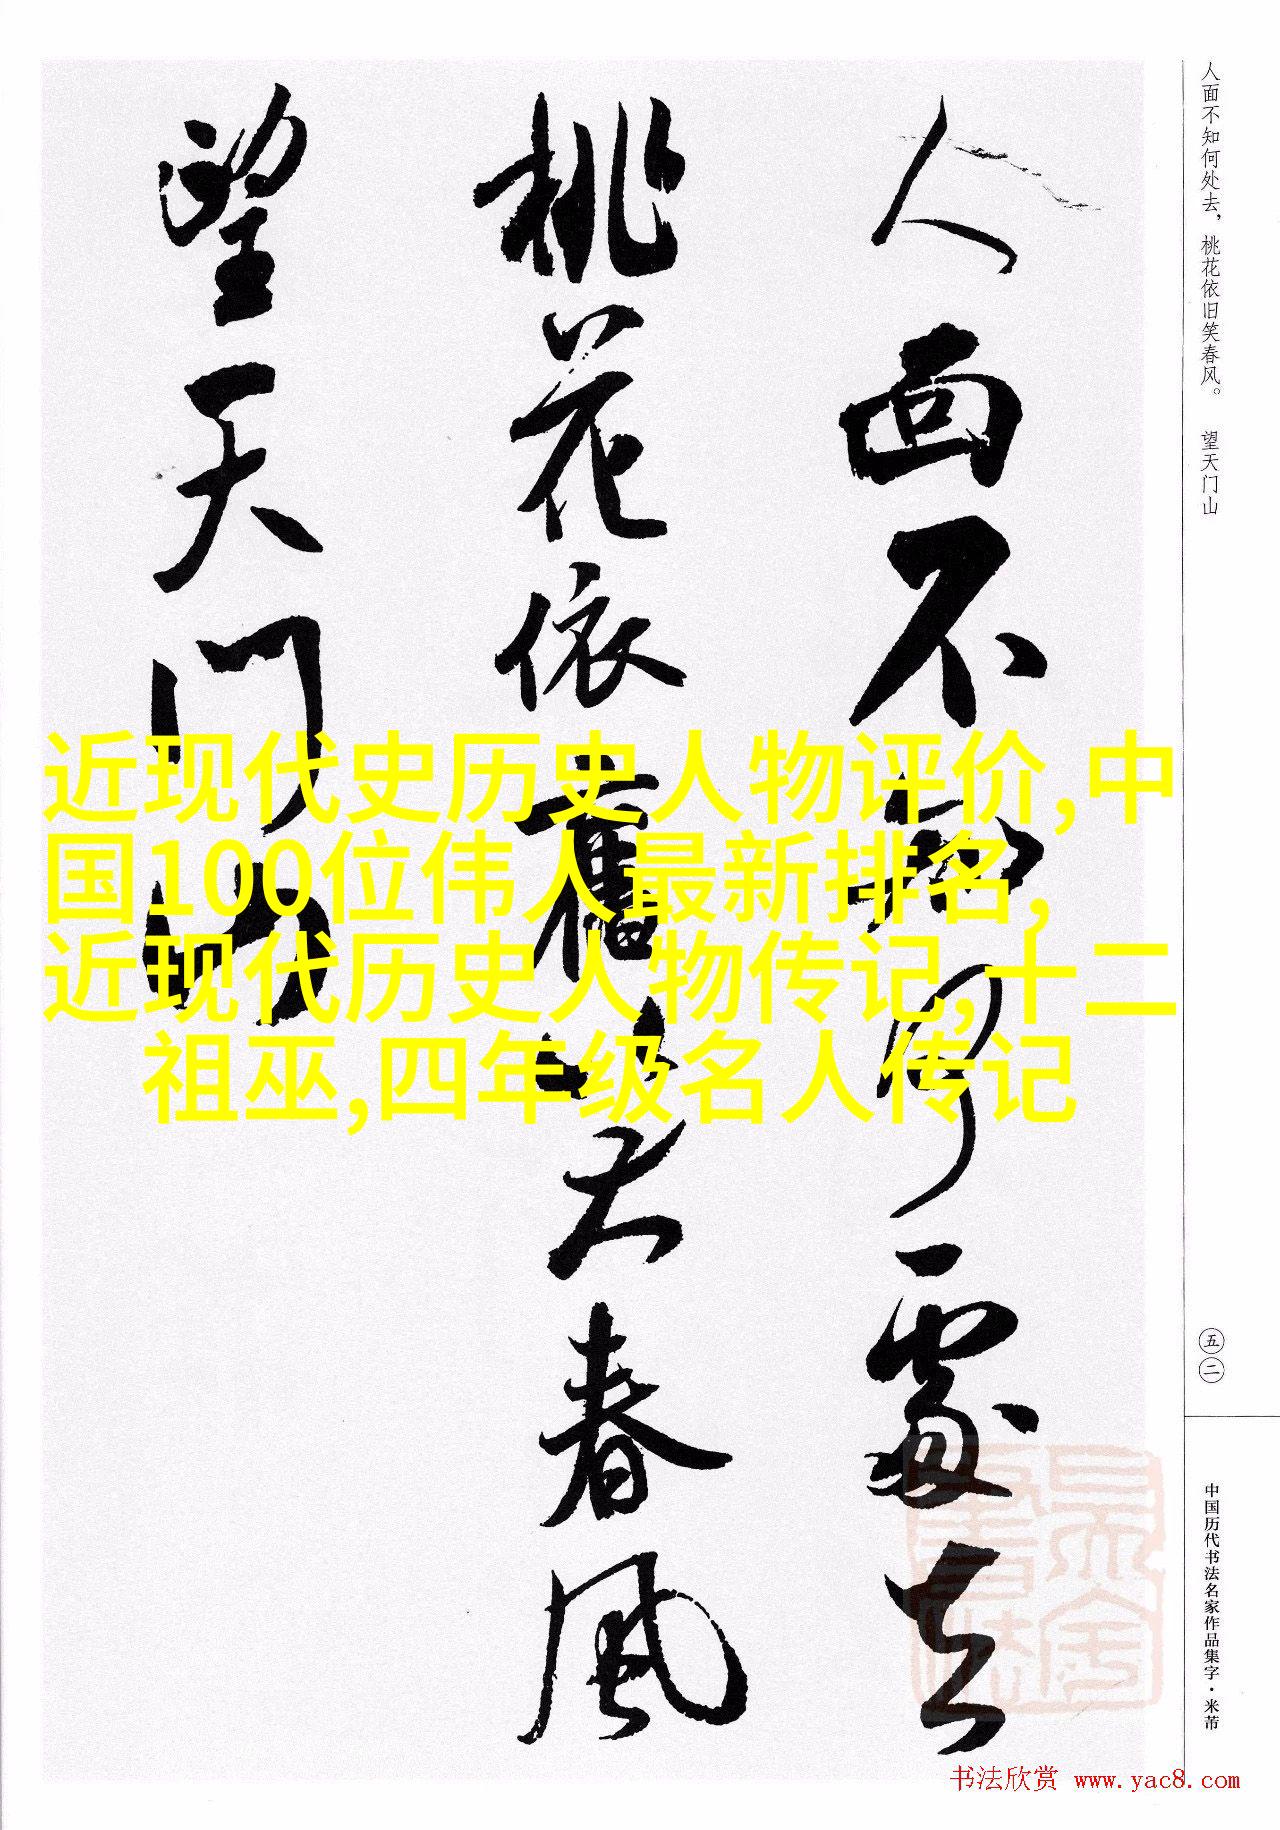 人面不知何处去，桃花依旧笑春风。 望天门山
人面不知何處去
桃花依舊笑春風
望天门山
近现代史历史人物评价,中
国100位伟人最新排名,
近现代历史人物传记,十二
祖巫,四年级名人传记
五二
中国历代书法名家作品集字·米芾
书法欣赏 www.yac8.com